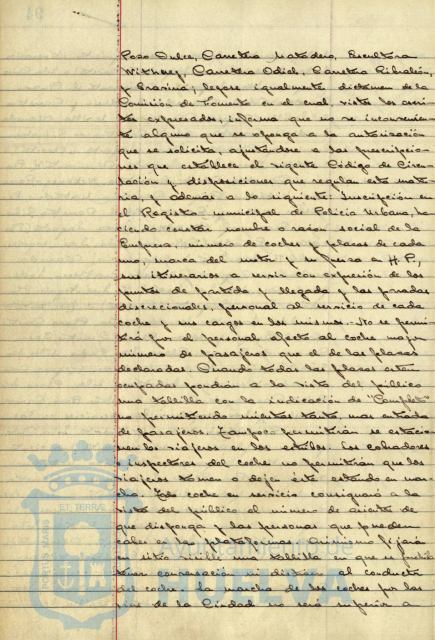 Pozo Dulce, Carretera Matadero, Escultora
Withney, Carretera Odiel, Carretera Gibraleón,
y Gravina; léyose igualmente dictamen de la
Comisión de Fomento en el cual vistos los escri-
tos expresados, informa que no se inconvenien-
te alguno que se oponga a la autorización
que se solicita, ajustándose a las prescripcio-
nes que establece el vigente Código de Circu-
lación y disposiciones que regulan esta mate-
ria, y además a lo siguiente: Inscripción en
el Registro municipal de Policía Urbana, ha-
ciendo constar nombre o razón social de la
Empresa, número de coches y plazas de cada
uno, marca del motor y su fuerza a H.P.,
sus itinerarios a servir con expresión de los
puntos de partida y llegada y las paradas
discrecionales, personal al servicio de cada
coche y sus cargos en los mismos.- No se permi-
tirá por el personal afecto al coche mayor
número de pasajeros que el de las plazas
declaradas. Cuando todas las plazas estén
ocupadas pondrán a la vista del público
una tablilla con la indicación de "Completo"
no permitiendo mientras tanto, mas entrada
de pasajeros. Tampoco permitirán se estacio-
nen los viajeros en los estribos. Los cobradores
e inspectores del coche no permitirán que los
viajeros tomen o dejen éste estando en mar-
cha. Todo coche en servicio consignará a la
vista del público el número de asientos de
que disponga y las personas que pueden
caber en las plataformas. Asimismo fijará
en sitio visible una tablilla en que se prohiba
tener conversación ni distraer al conductor
del coche. La marcha de los coches por las
de la Ciudad no será superior a
PORTUS MARIS
ET TERRAE